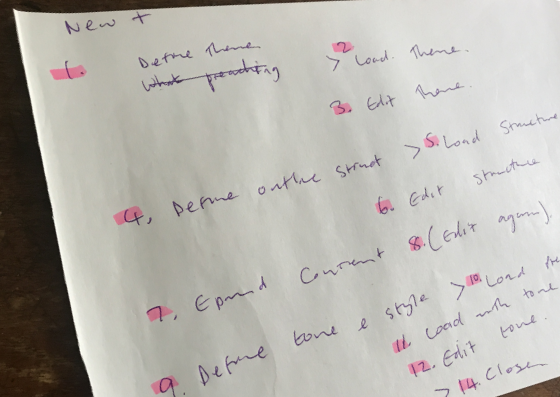 New +
1. Define Theme > 2. Load Theme.
What preaching
3. Edit Theme.
4. Define outline struct > 5. Load Structure
6. Edit structure
7. Expand Content 8. (Edit again)
9. Define tone & style > 10. Load
11. Load with tone
12. Edit tone.
> 14. Closer